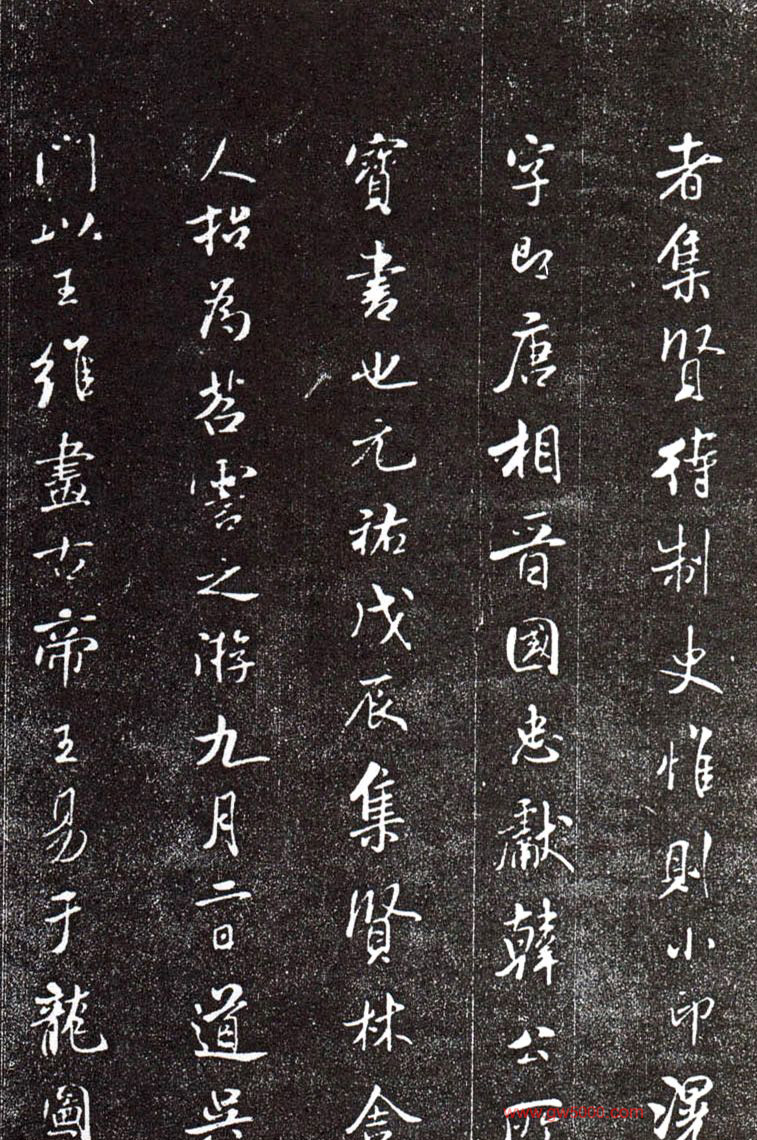 者集賢待制史惟則小印滉
字即唐相晉國忠獻韓公所
寶書也元祐戊辰集賢林舍
人招為苕霅之游九月二日道吳
門以王維畫古帝王易于龍圖